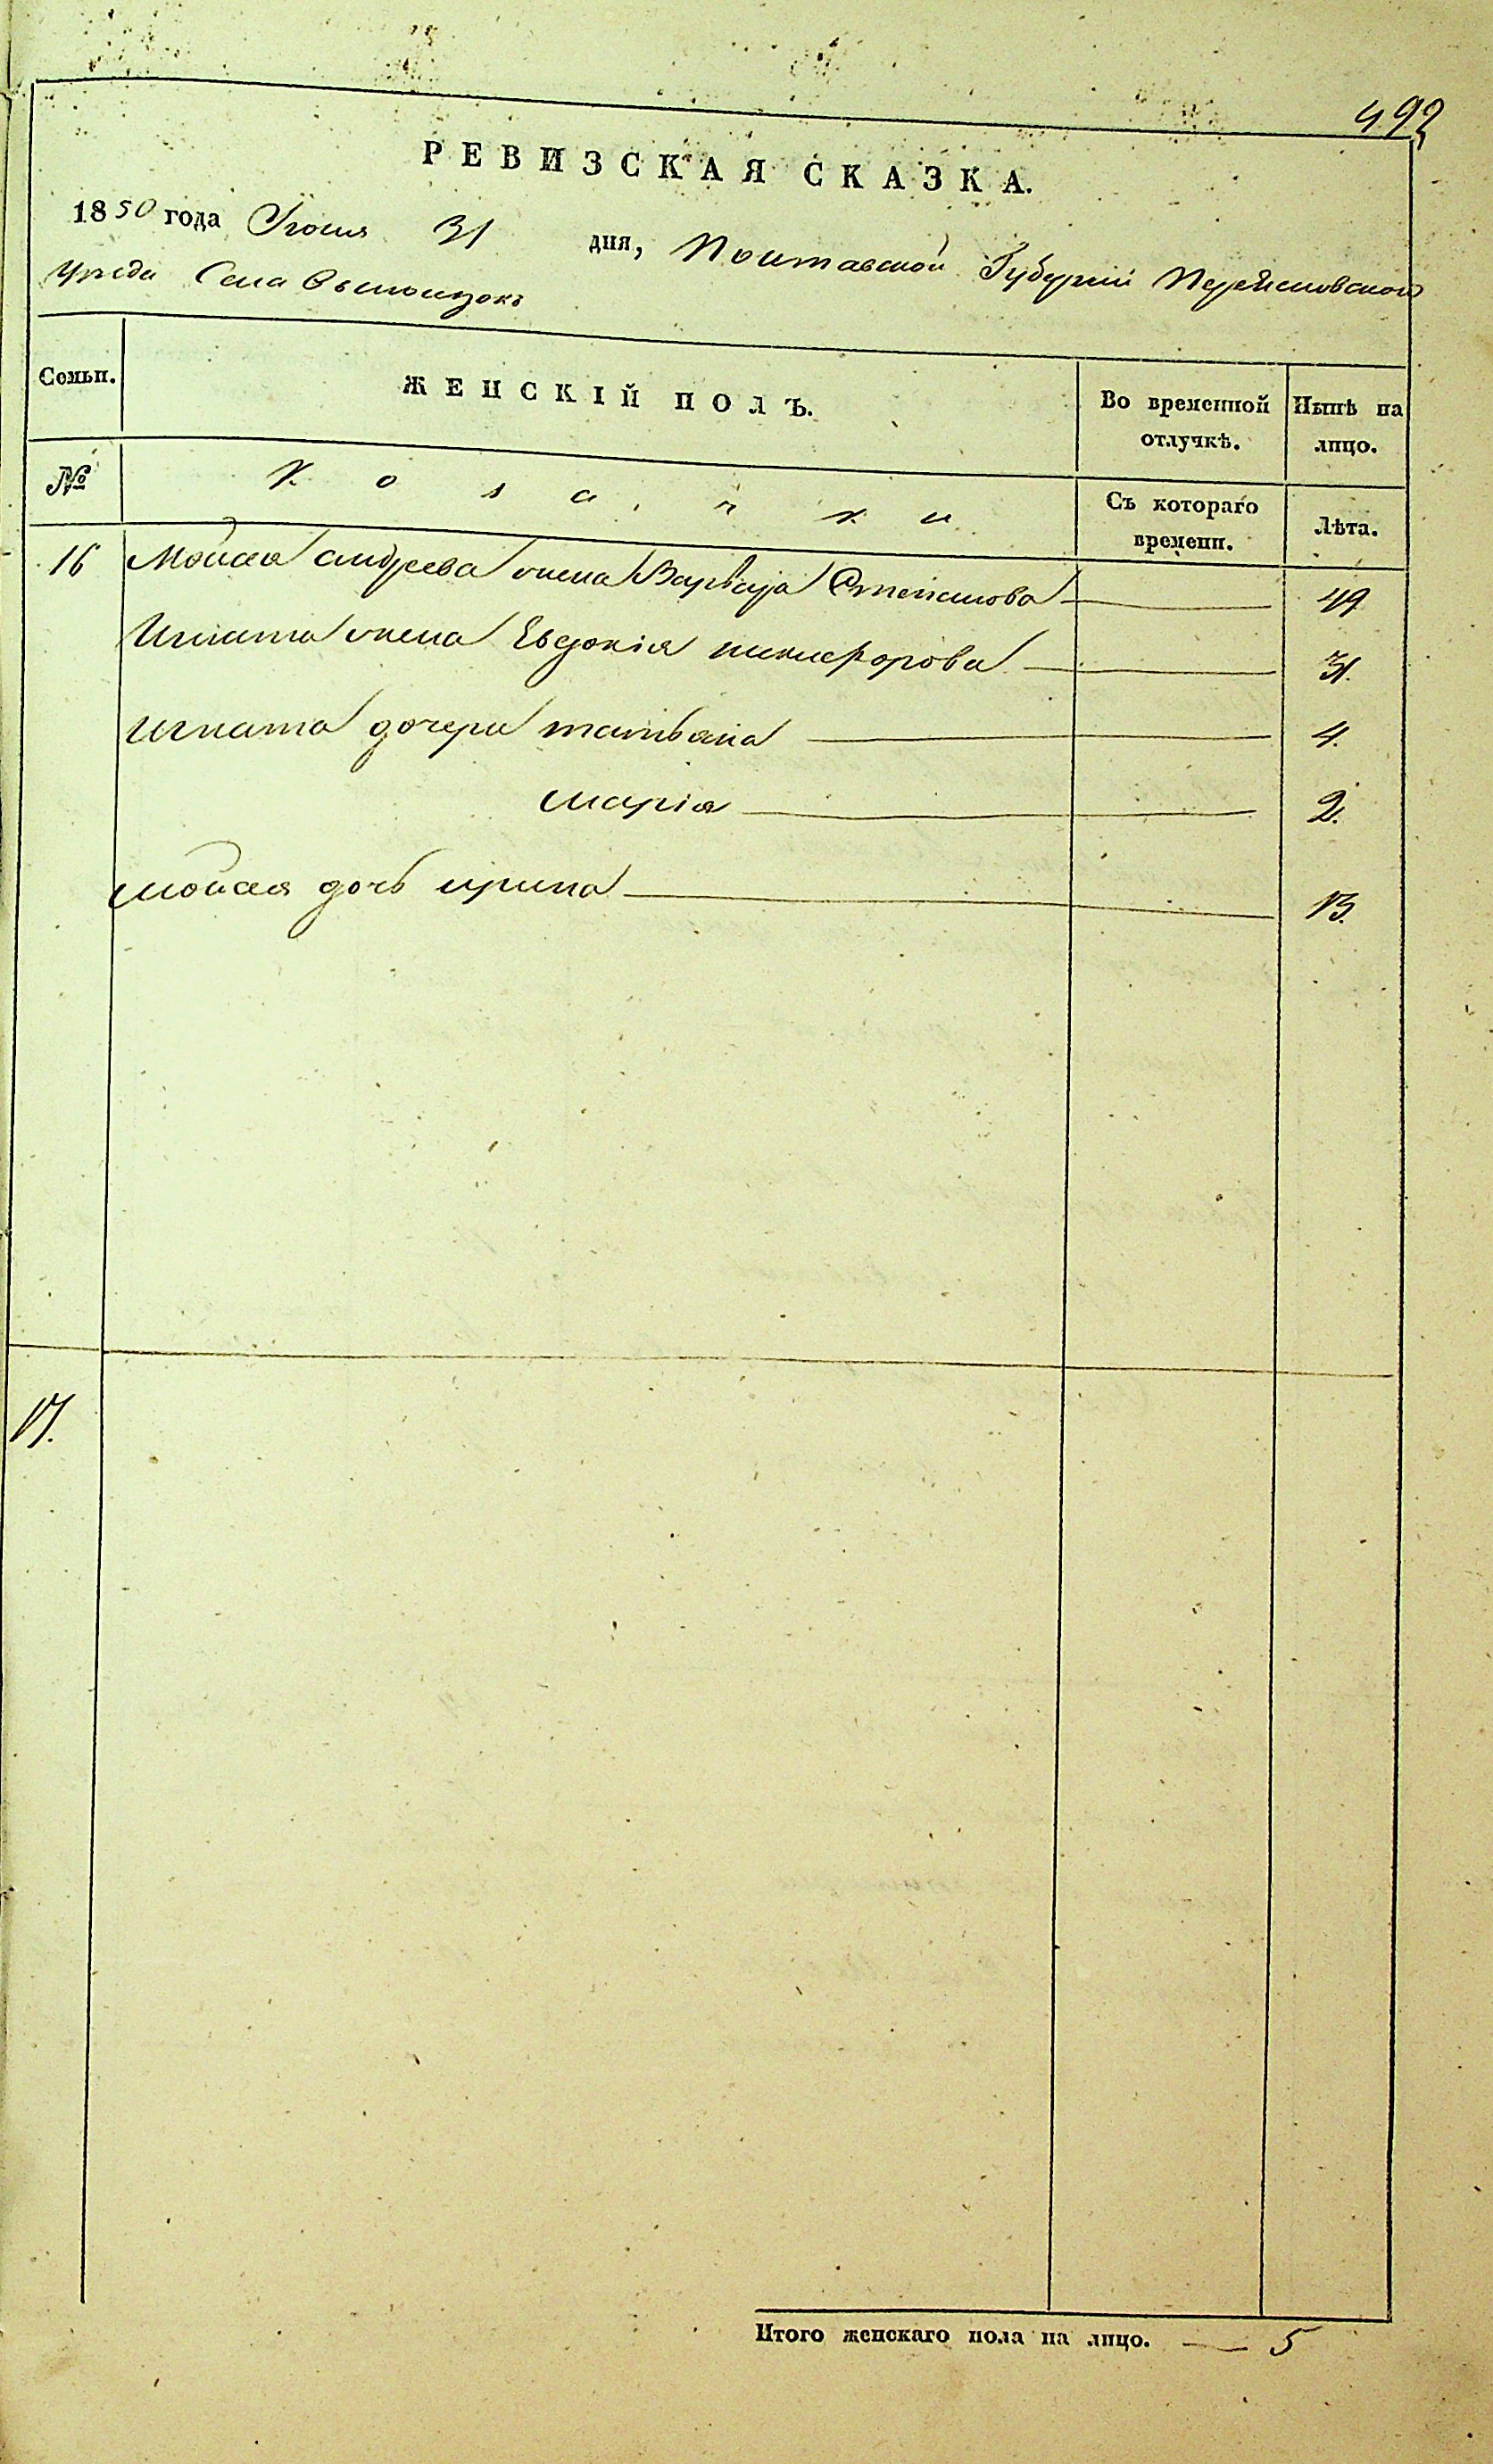 492
РЕВИЗСКАЯ СКАЗКА.
1850 года Июля 31 дня, Полтавской Губернии Переяславского
Уезда Села
Семьи. ЖЕНСКІЙ ПОЛЪ. Во временной отлучкѣ. Нынѣ на лицо.
№ Козачки Съ котораго времени. Лѣта.
16 Мойсея Андреева жена Варвара Степанова 49
Игната жена Евдокія никифорова 31.
игната дочери татьяна 4.
марія 2.
мойсея дочь ирина 13.
17.
Итого женскаго пола на лицо. 5